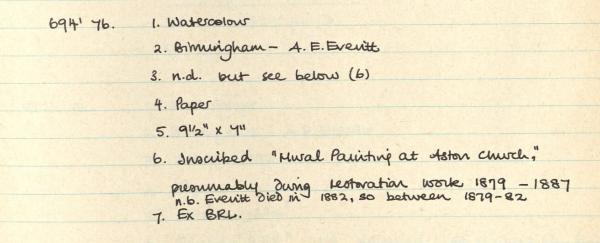 694' 76. 1. Watercolour
2. Birmingham – A. E. Everitt
3. n.d. but see below (6)
4. Paper
5. 9½" x 7"
6. Inscribed "Mural Painting at Aston Church,"
presumably during restoration work 1879 – 1887
n.b. Everitt died in 1882, so between 1879–82
7. Ex BRL.